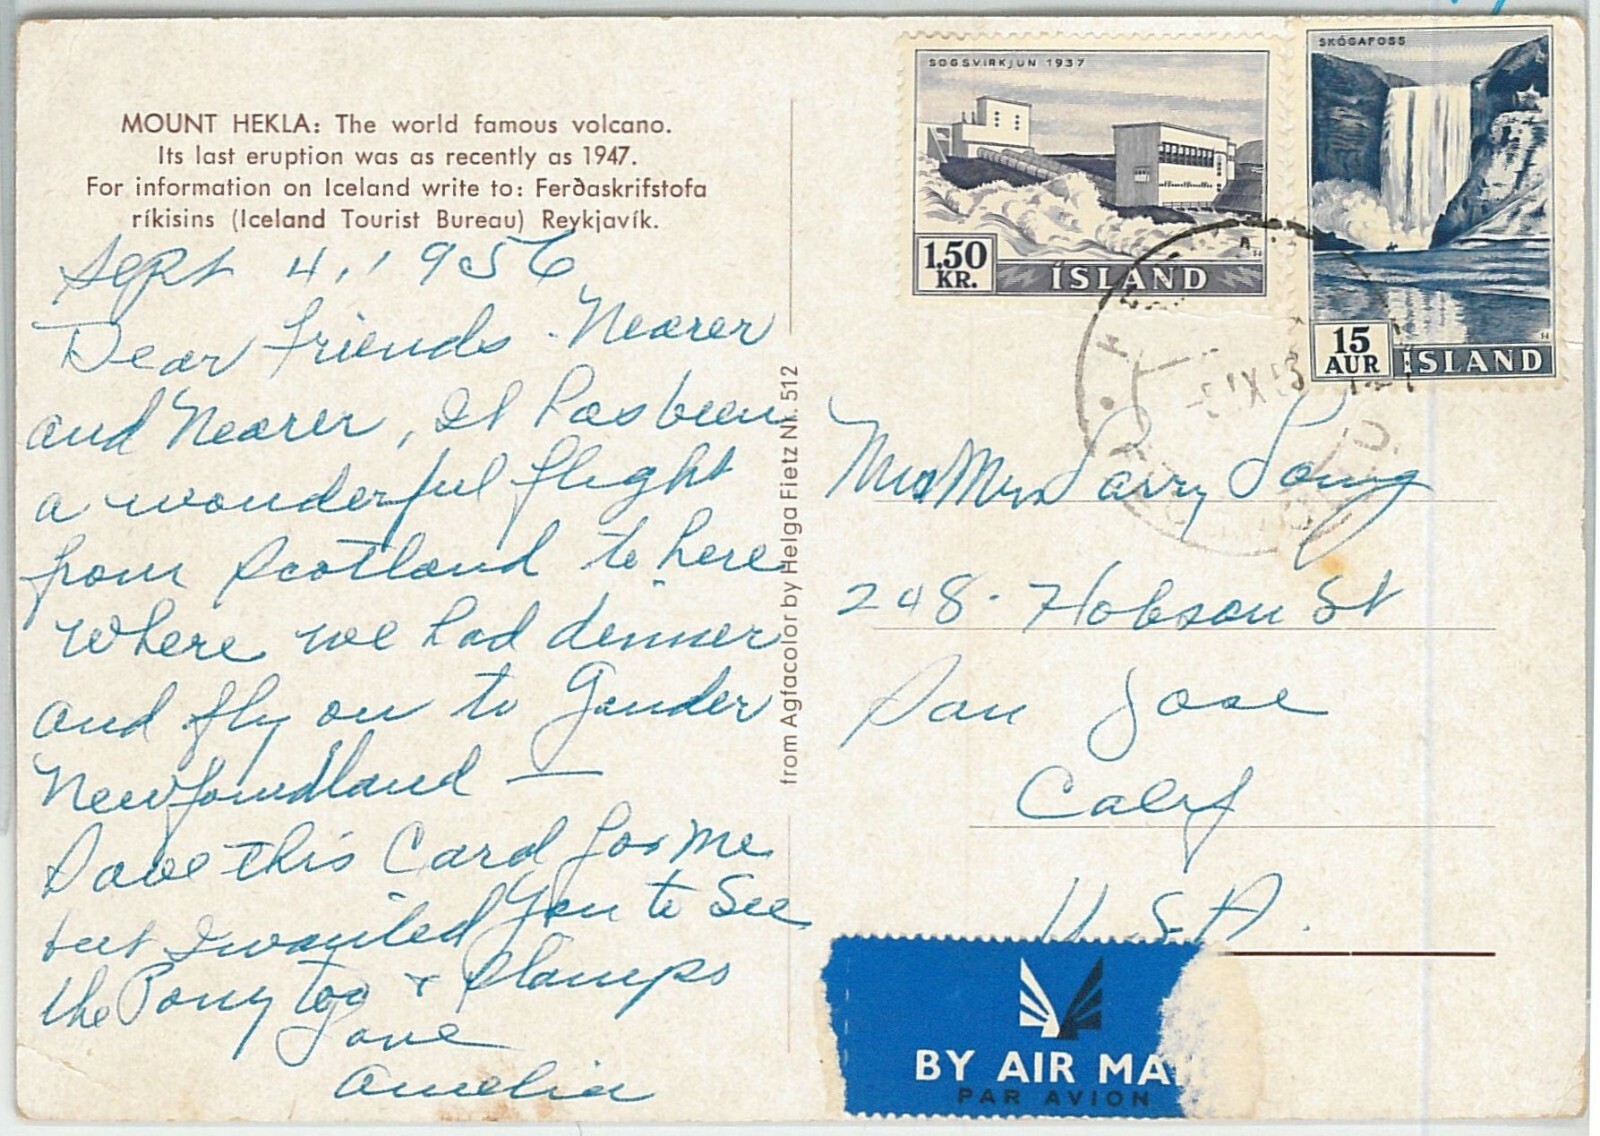 MOUNT HEKLA: The world famous volcano.
Its last eruption was as recently as 1947.
For information on Iceland write to: Ferðaskrifstofa
ríkisins (Iceland Tourist Bureau) Reykjavík.
Sept 4, 1956
Dear Friends. Nearer
and Nearer, It has been
a wonderful flight
from Scotland to here
where we had dinner
and fly on to Gander
Newfoundland —
Save this Card for me
but I wanted you to See
the Pony too & Stamps
Love
Amelia
from Agfacolor by Helga Fietz Nr. 512
SOGSVIRKJUN 1937
1,50
KR.
ÍSLAND
SKÓGAFOSS
15
AUR
ÍSLAND
Mr & Mrs Parry Long
248 - Hobson St
San Jose
Calif
U.S.A.
BY AIR MA
PAR AVION